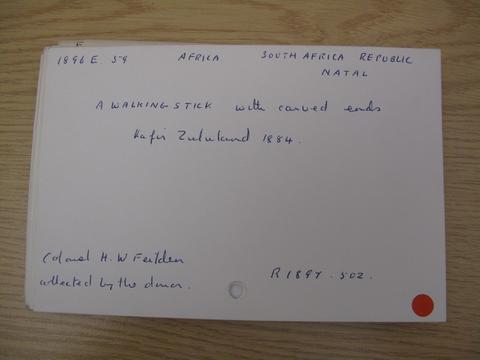 1896 E. 59 AFRICA SOUTH AFRICA REPUBLIC
NATAL
A WALKING STICK with carved ends
Kafir Zululand 1884.
Colonel H. W Feilden
collected by the donor.
R 1897. 502.